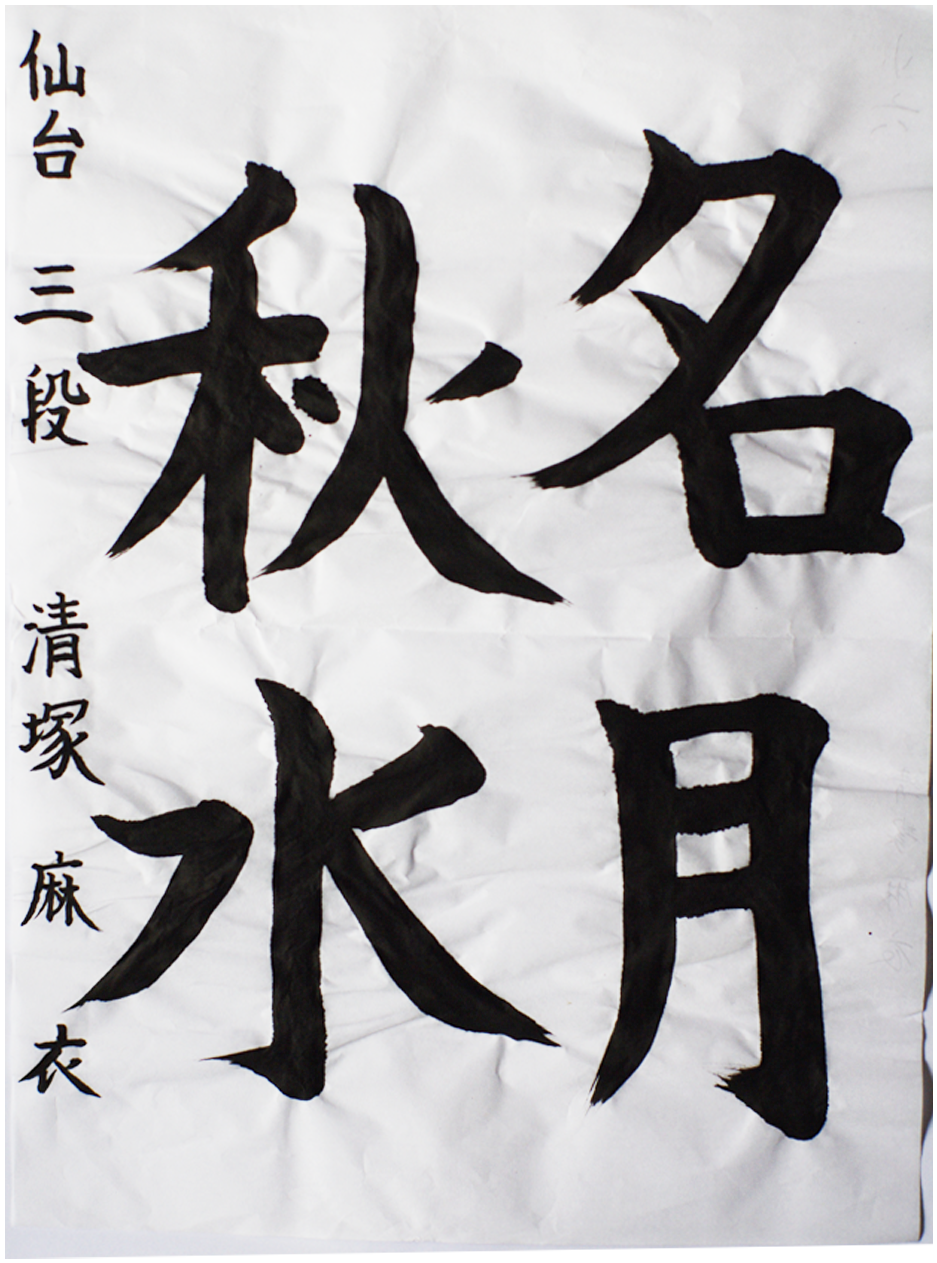 名月
秋水
仙台 三段 清塚 麻衣